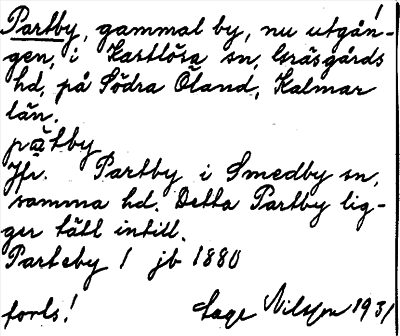 Partby, gammal by, nu utgån-
gen, i Kastlösa sn, Gräsgårds
hd, på Södra Öland, Kalmar
län.
pàtby
Jfr. Partby i Smedby sn,
samma hd. Detta Partby lig-
ger tätt intill.
Parteby 1 jb 1880
forts! Lage Nilsson 1931